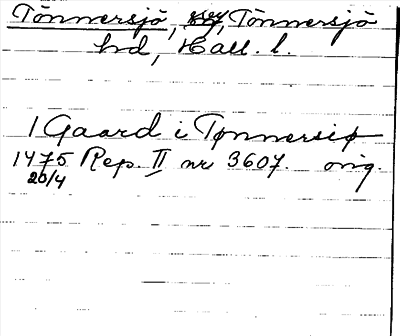 Tönnersjö, Tönnersjö
hd, Hall. l.
1 Gaard i Tønnersiø
1475 Rep. II nr 3607. orig.
20/4